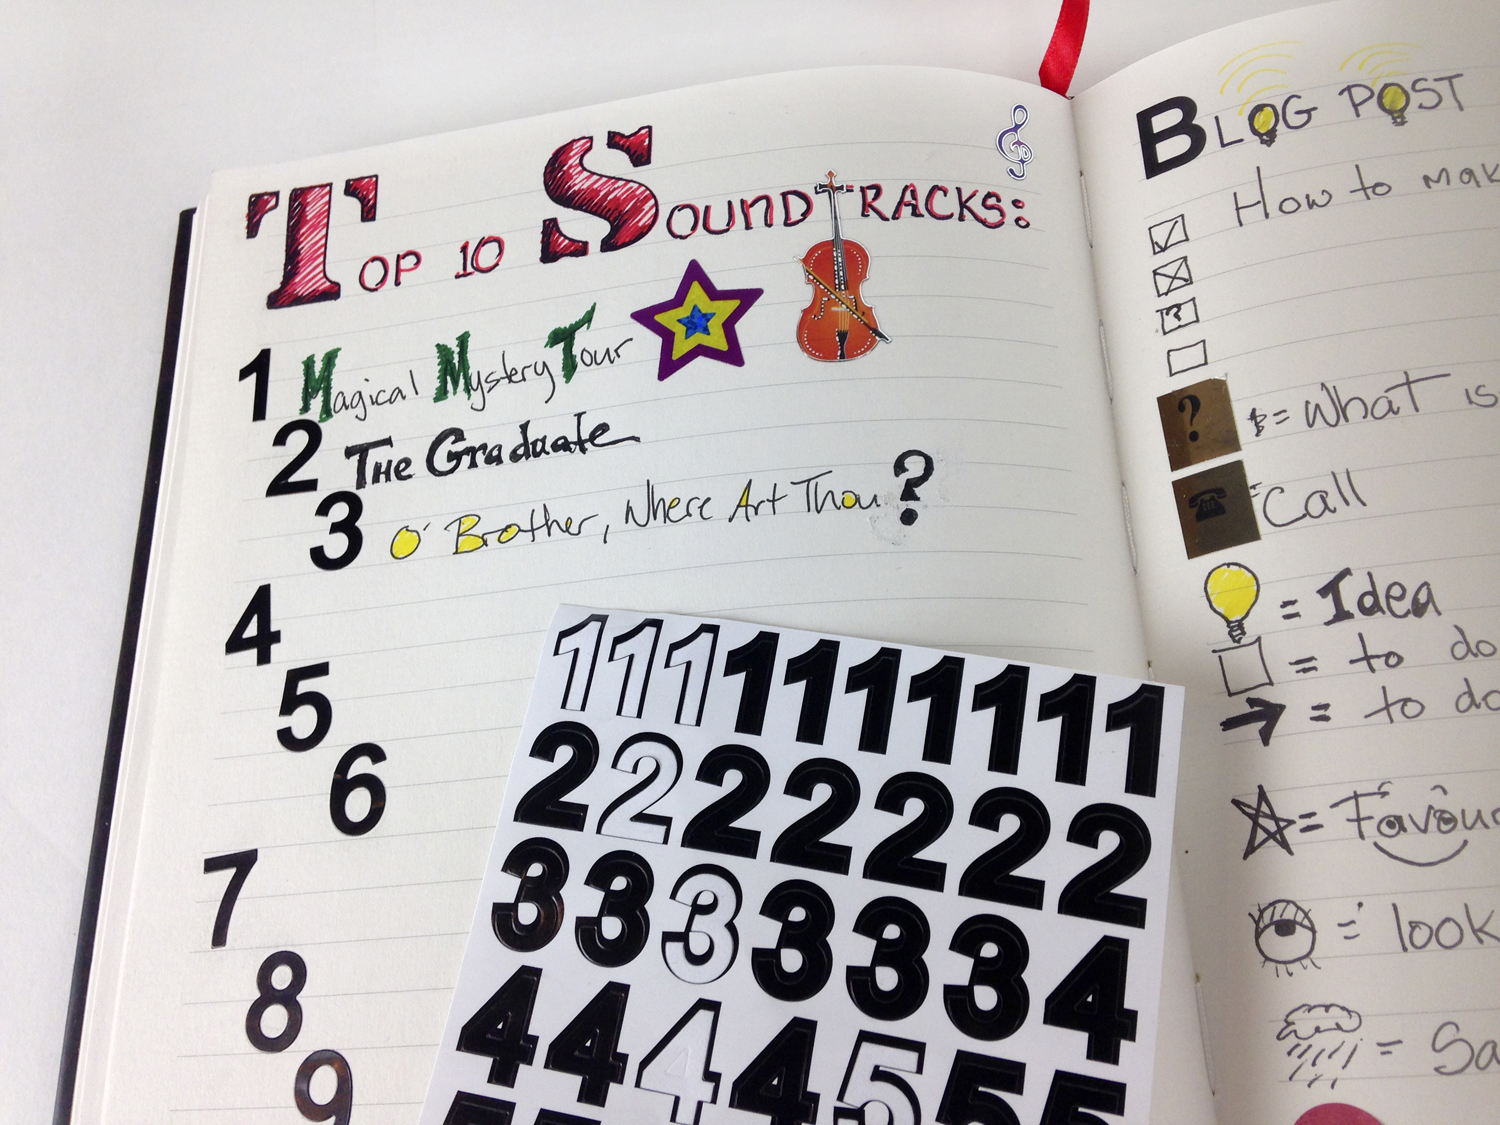 Top 10 Soundtracks:
1 Magical Mystery Tour
2 The Graduate
3 O' Brother, Where Art Thou?
4
5
6
7
8
9
1 1 1 1 1 1 1 1 1 1
2 2 2 2 2 2 2
3 3 3 3 3 3 4
4 4 4 4 5 5 5
Blog Post
How to
?
? = What is
= Call
= Idea
= to do
= to do
= Favour
= look
=